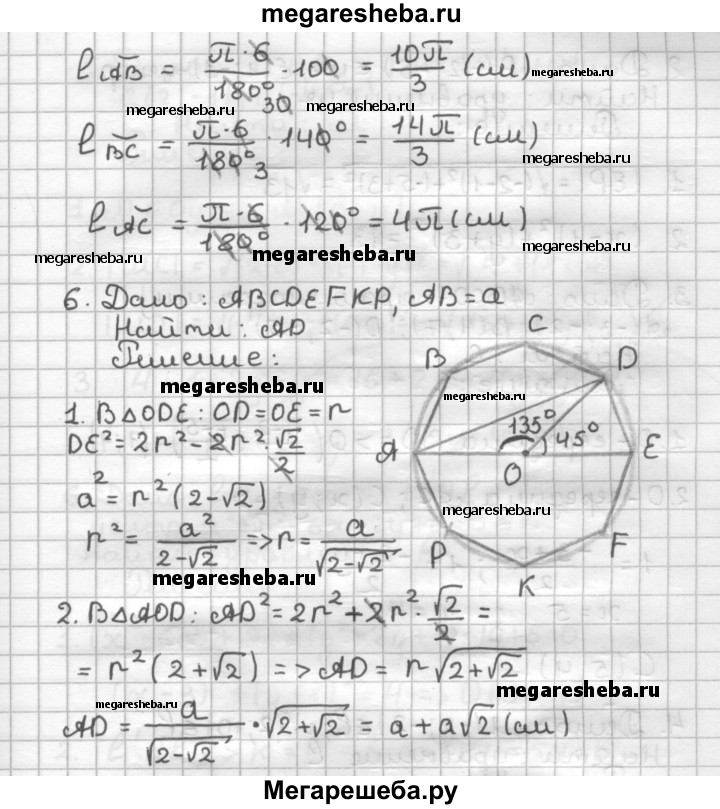 megaresheba.ru
l ᴗAB = π·6/180° · 100 = 10π/3 (см) megaresheba.ru
30
megaresheba.ru megaresheba.ru
l ᴗBC = π·6/180° · 140° = 14π/3 (см)
3
megaresheba.ru
l ᴗAC = π·6/180° · 120° = 4π (см)
megaresheba.ru megaresheba.ru megaresheba.ru
6. Дано: ABCDEFKP, AB = a
Найти: AD
Решение:
megaresheba.ru
1. В △ODE: OD = OE = r
DE² = 2r² - 2r² · √2/2
a² = r² (2 - √2)
r² = a²/(2 - √2) => r = a/√(2 - √2)
megaresheba.ru
C
B D
megaresheba.ru
135° 45°
A E
O
megaresheba.ru
P F
K
2. В △AOD: AD² = 2r² + 2r² · √2/2 =
= r² (2 + √2) => AD = r√(2 + √2)
megaresheba.ru megaresheba.ru
AD = a/√(2 - √2) · √(2 + √2) = a + a√2 (см)
megaresheba.ru
Мегарешеба.ру